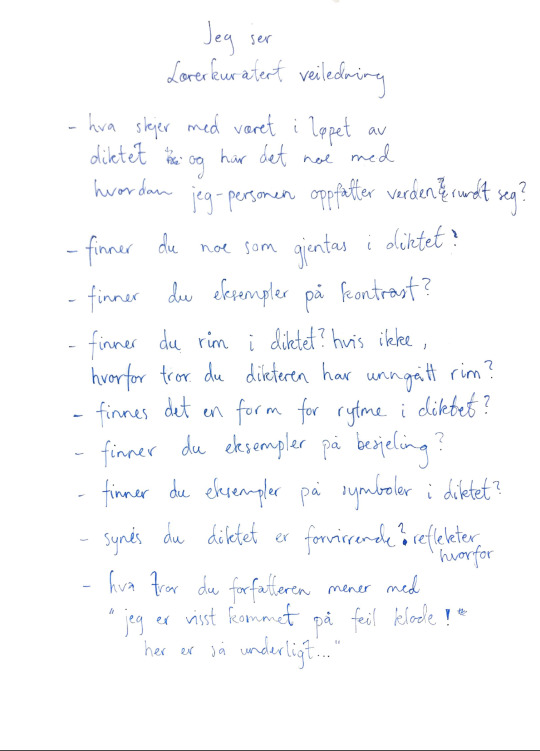 Jeg ser
Lærerkuratert veiledning
- hva skjer med været i løpet av
diktet og har det noe med
hvordan jeg-personen oppfatter verden rundt seg?
- finner du noe som gjentas i diktet?
- finner du eksempler på kontrast?
- finner du rim i diktet? hvis ikke,
hvorfor tror du dikteren har unngått rim?
- finnes det en form for rytme i diktet?
- finner du eksempler på besjeling?
- finner du eksempler på symboler i diktet?
- synes du diktet er forvirrende? reflekter
hvorfor
- hva tror du forfatteren mener med
"jeg er visst kommet på feil klode!"
her er så underligt..."